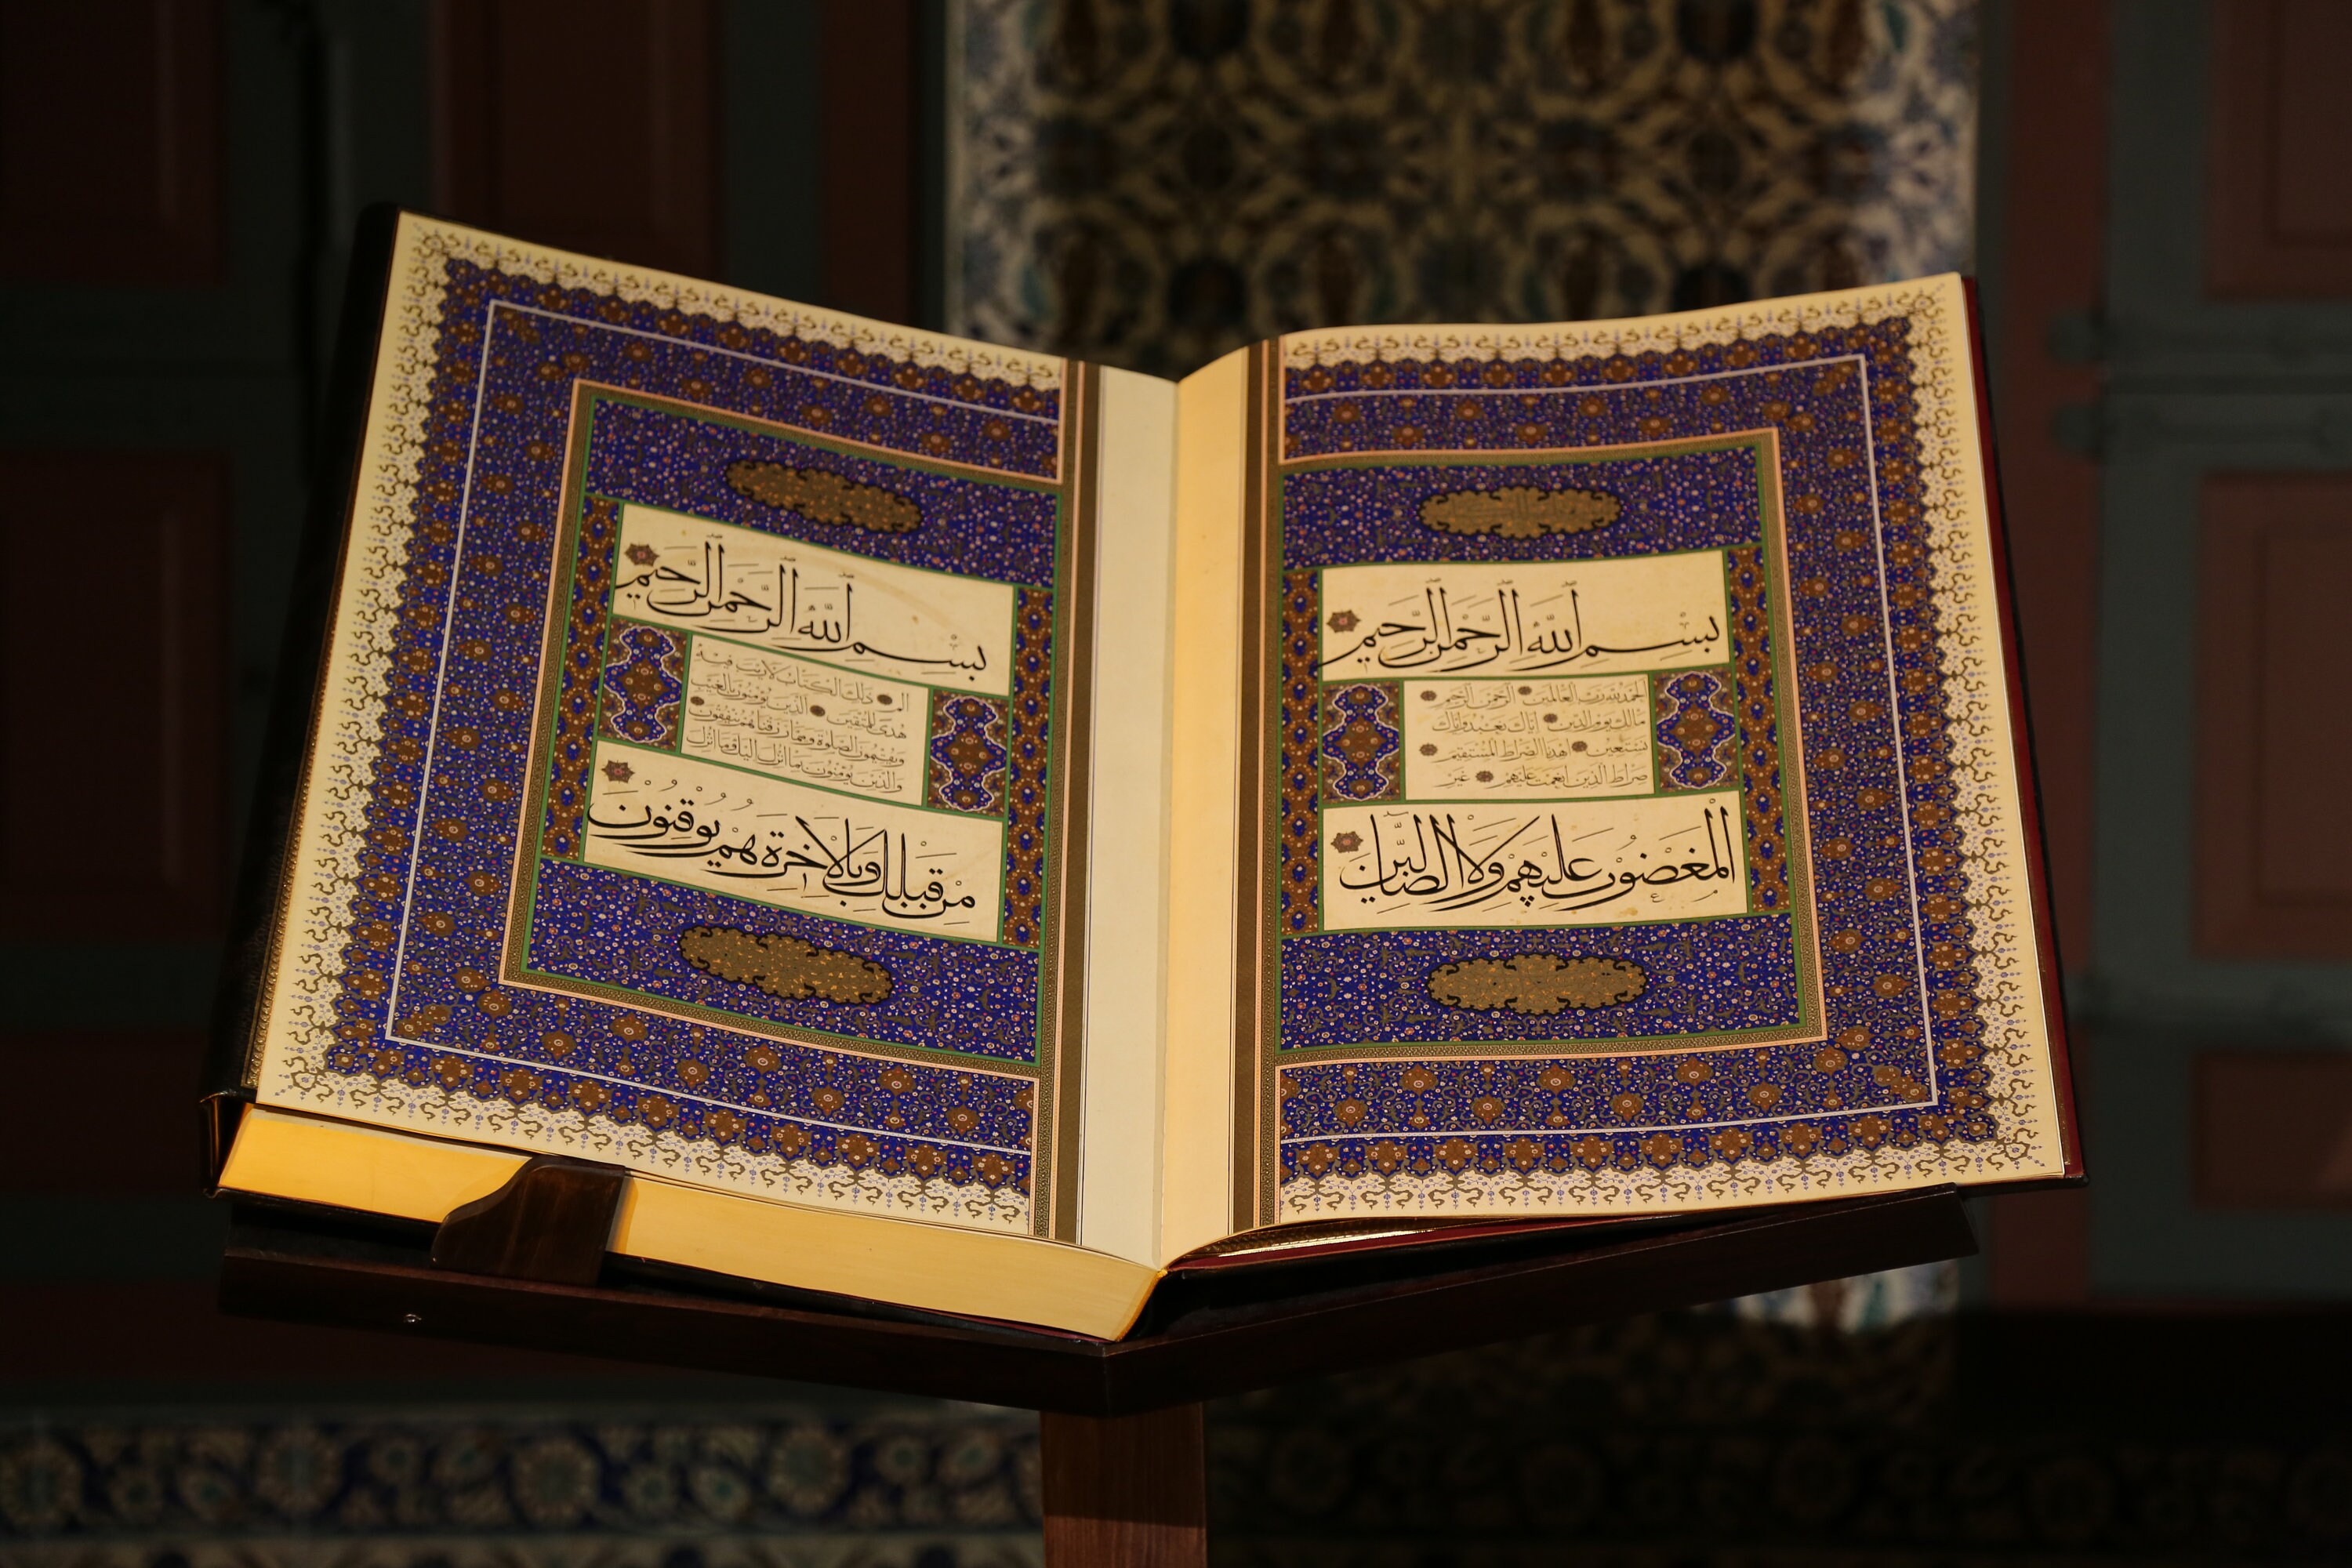 بِسْمِ اللَّهِ الرَّحْمٰنِ الرَّحِيمِ
الحمد لله رب العالمين الرحمن الرحيم
مالك يوم الدين اياك نعبد واياك
نستعين اهدنا الصراط المستقيم
صراط الذين انعمت عليهم غير
الْمَغْضُوبِ عَلَيْهِمْ وَلَا الضَّالِّينَ
بِسْمِ اللَّهِ الرَّحْمٰنِ الرَّحِيمِ
الم ذلك الكتاب لا ريب فيه
هدى للمتقين الذين يؤمنون بالغيب
ويقيمون الصلوة ومما رزقناهم ينفقون
والذين يؤمنون بما انزل اليك وما انزل
مِنْ قَبْلِكَ وَبِالْاٰخِرَةِ هُمْ يُوقِنُونَ